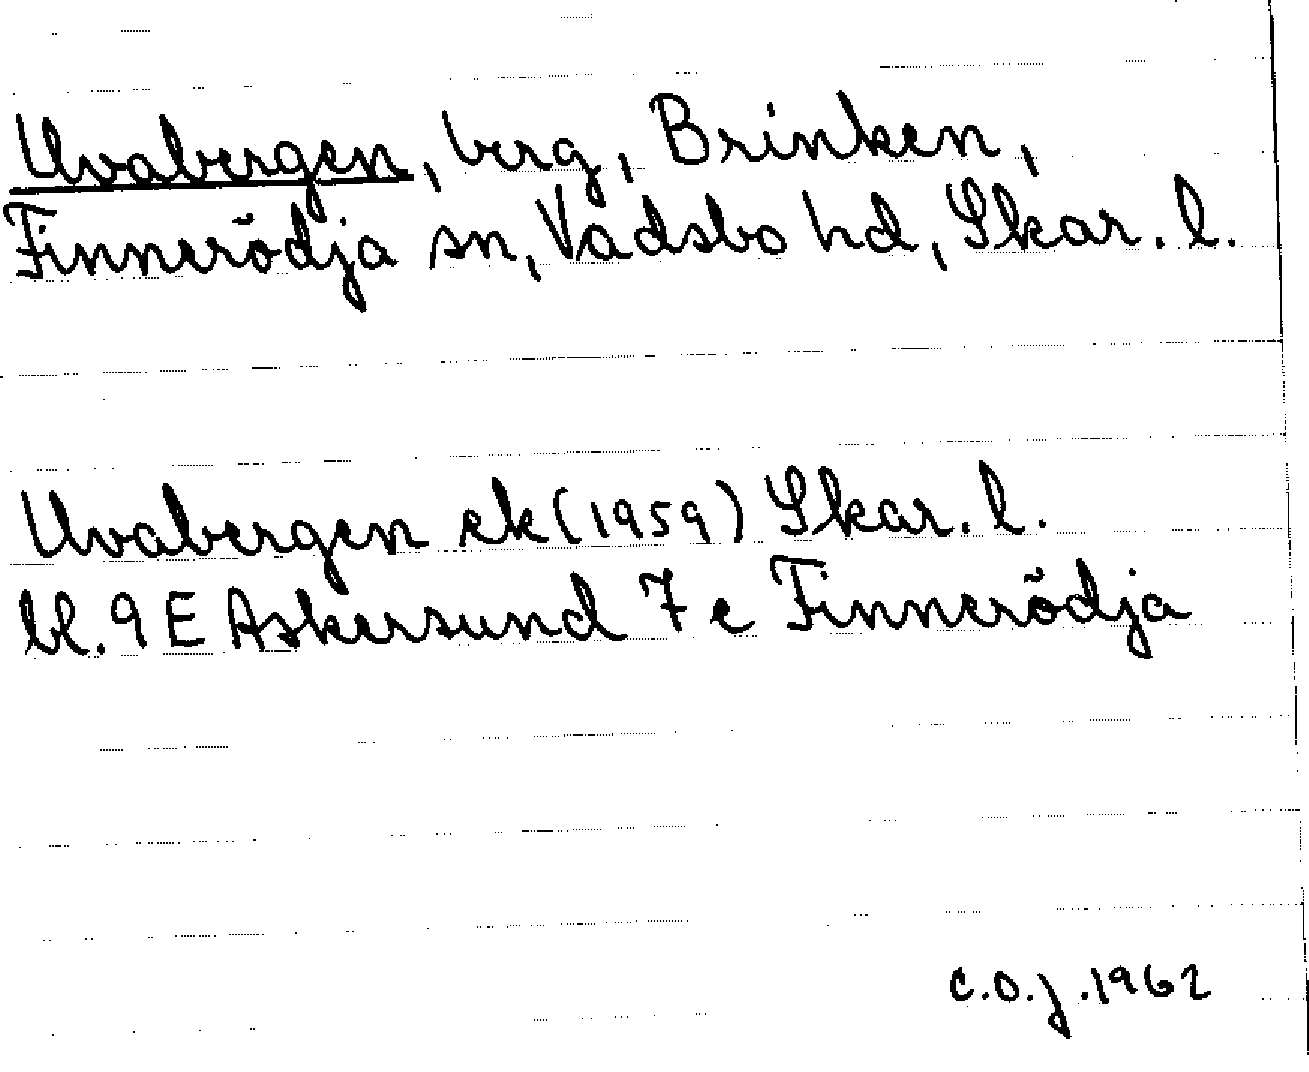 Uvabergen, berg, Brinken,
Finnerödja sn, Vadsbo hd, Skar. l.
Uvabergen ek (1959) Skar. l.
bl. 9 E Askersund 7 e Finnerödja
C.O.J. 1962